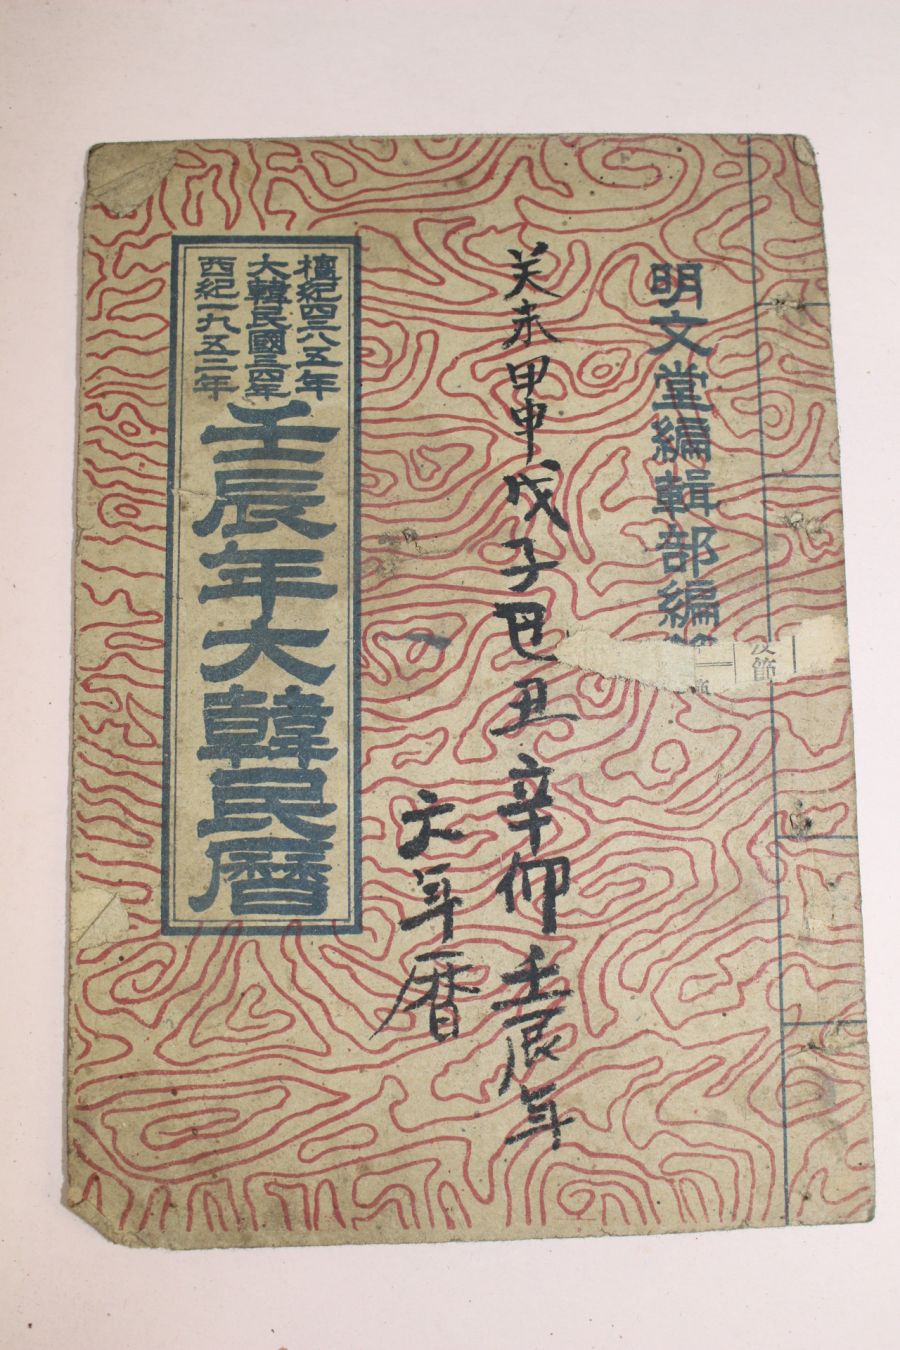 明文堂編輯部編
及節
癸未甲申戊子己丑辛卯壬辰年
六年曆
檀紀四二八五年
大韓民國三四年
西紀一九五二年
壬辰年大韓民曆